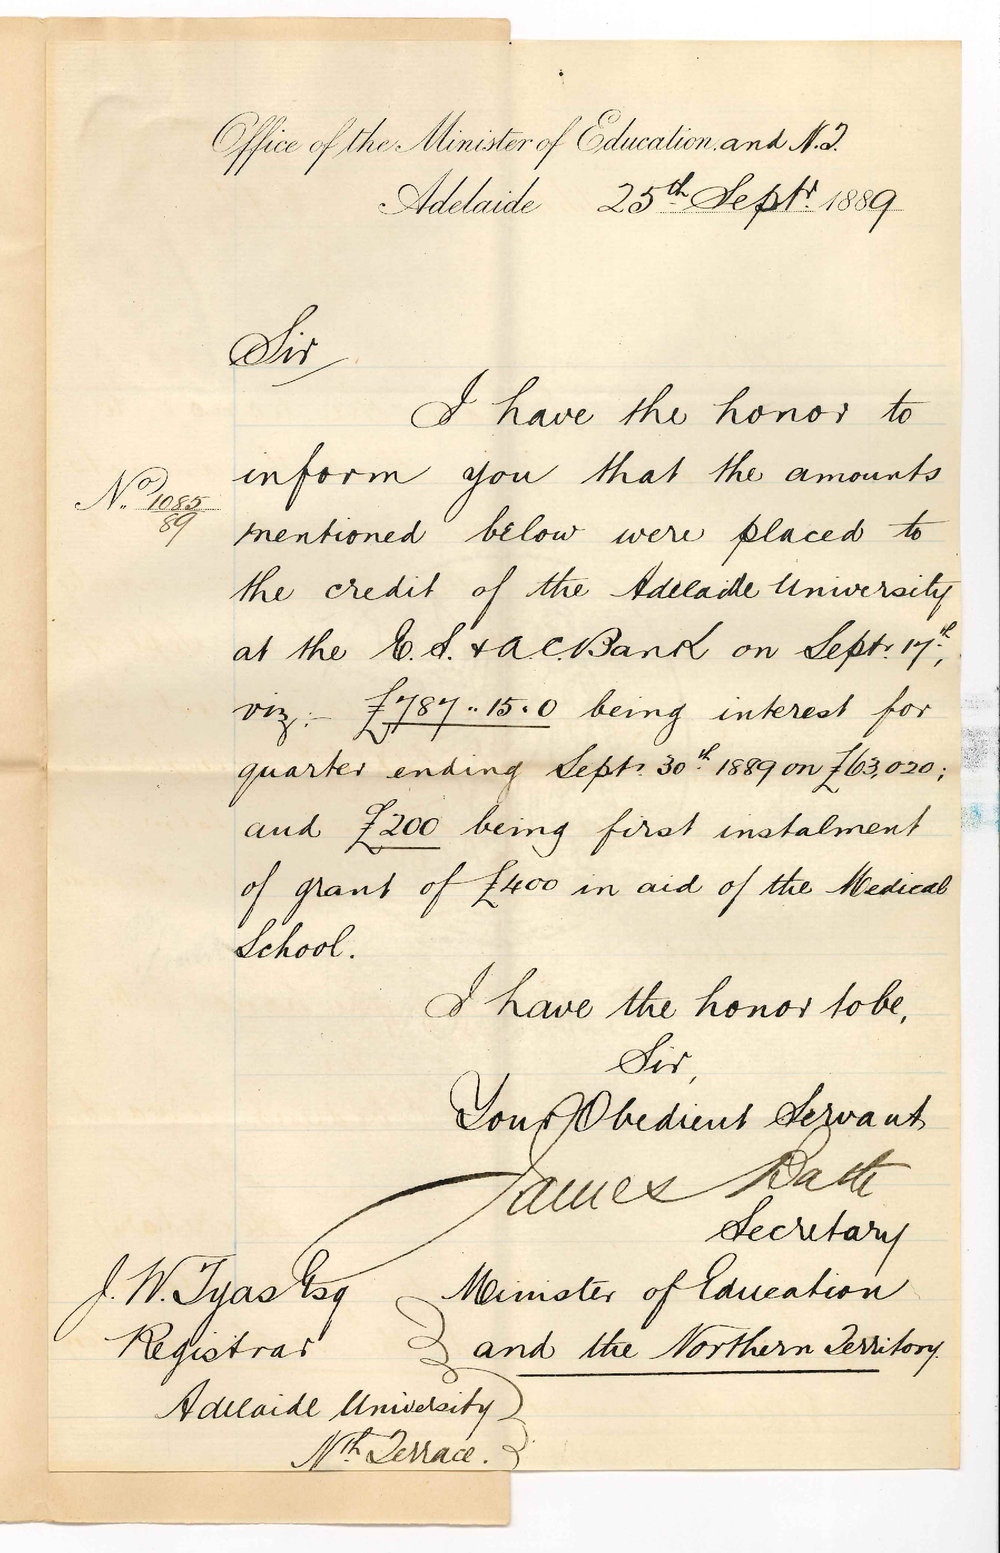 Office of the Minister of Education. and N.T.
Adelaide 25th Septr. 1889
Sir
I have the honor to
inform you that the amounts
No. 1085/89
mentioned below were placed to
the credit of the Adelaide University
at the E. S. & A. C. Bank on Septr. 17th,
viz:- £787..15.0 being interest for
quarter ending Septr. 30th 1889 on £63,020;
and £200 being first instalment
of grant of £400 in aid of the Medical
School.
I have the honor to be,
Sir,
Your Obedient Servant
James Bath
Secretary
Minister of Education
and the Northern Territory.
J. W. Tyas Esq
Registrar
Adelaide University
Nth Terrace.